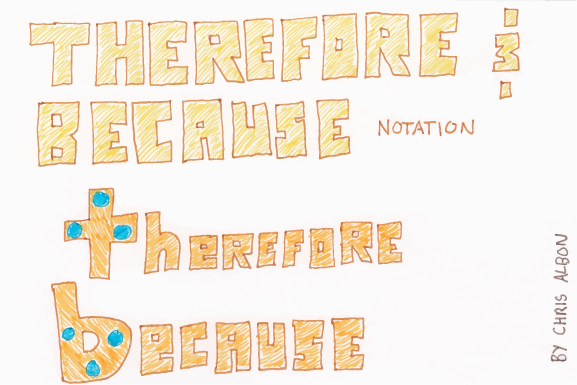 THEREFORE &
BECAUSE NOTATION
therefore
because
BY CHRIS ALBON